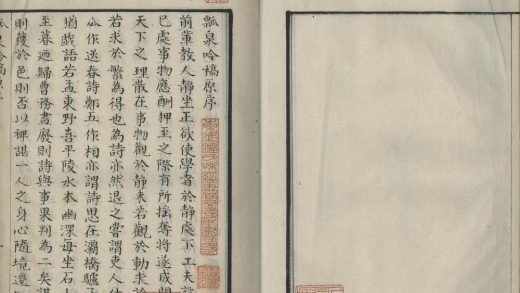 瓢泉吟稿原序
前輩教人靜坐正欲使學者於靜處下工夫
已處事物應酬狎至之際有所搖奪將遂成間
天下之理散在事物觀於靜未若觀於動求於
若求於繁為得也為詩亦然退之嘗謂吏人休
公作送春詩鄭五作相亦謂詩思在灞橋驢
猶戲語若孟東野喜平陵水木幽深每坐石上
至暮迺歸曹務盡廢則詩與事果判為二矣謀
則獲於邑則否以裨諶一人之身心隨境遷
瓢泉吟稿原序